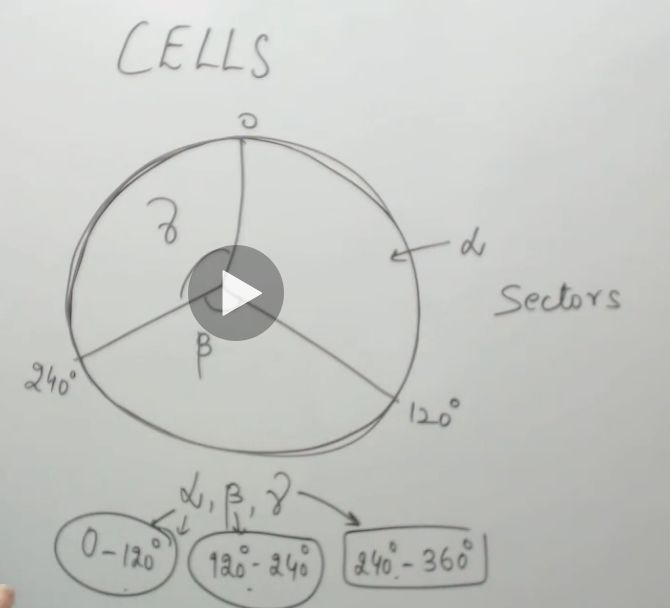 CELLS
0
γ
α
Sectors
β
240°
120°
α, β, γ
0-120°
120°-240°
240°-360°